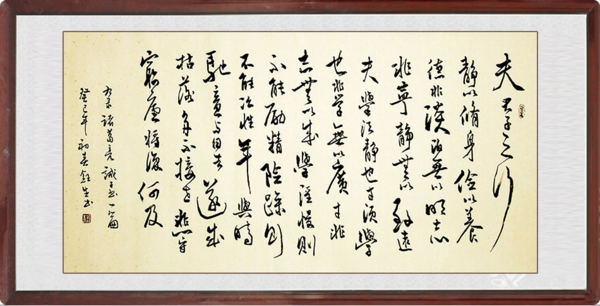 夫君子之行
靜以脩身儉以養
德非淡泊無以明志
非寧靜無以致遠
夫學須靜也才須學
也非學無以廣才非
志無以成學淫慢則
不能勵精險躁則
不能冶性年與時
馳意與日去遂成
枯落多不接世悲守
窮廬將復何及
諸葛亮誡子書一篇
癸巳年初春生書